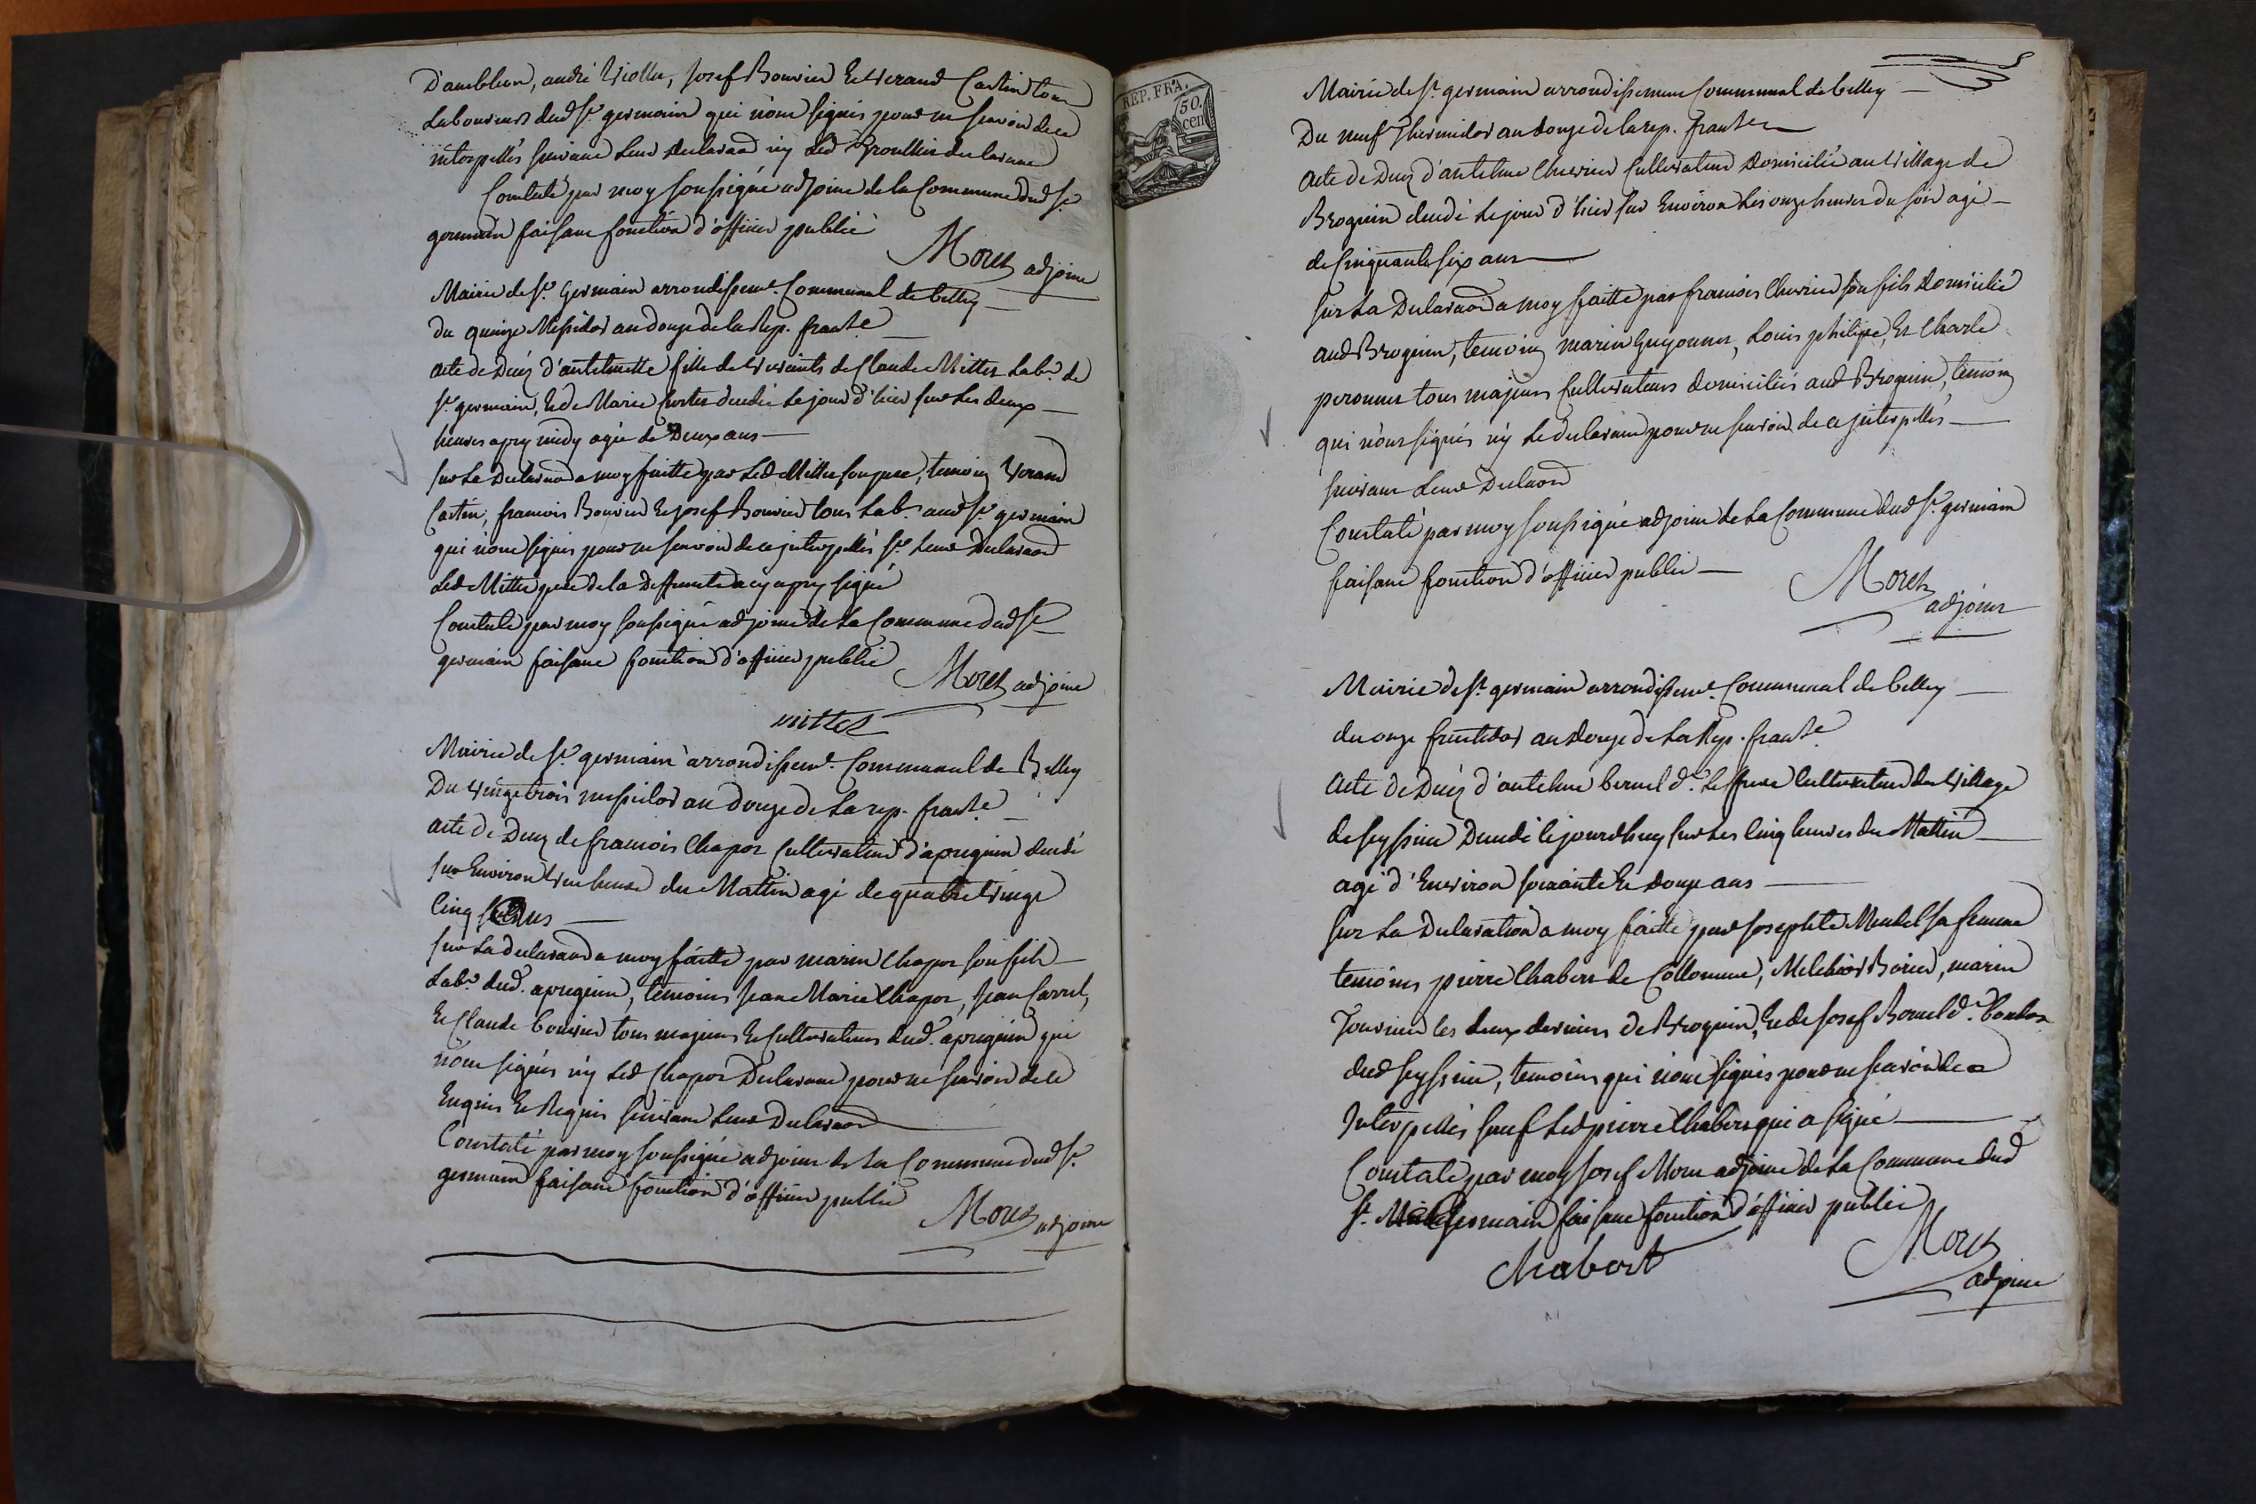 D'ambleon, andré Viollet, Josef Bouvier Et Verand Castin tous
Laboureurs dud St germain qui n'ont signés pour ne scavoir de ce
interpellés suivant leur declaraon ny led declarant
Constaté par moy soussigné adjoint de la Commune dud St
germain faisant fonction d'officier publié
Moret adjoint
Mairie de St Germain arrondissemt Communal de belley
du quinze Messidor an douze de la Rep. franse
acte de Déces d'antelmette fille de vivants de Claude Mittet Labr de
St germain, Et de Marie dcedée le jour d'hier sur les deux
heures apry midy agée de Deux ans
sur la Declaraon a moy faitte par led Mittet son pere, temoins Verand
Castin, francois Bouvier Et josef Bouvier tous Labr aud St germain
qui n'ont signés pour ne scavoir de ce interpellés St leur Declaraon
Led Mittet pere de la Deffunte a cy apry signé
Constaté par moy soussigné adjoint de la Commune dud St
germain faisant fonction d'officier publié
Moret adjoint
mittet
Mairie de St germain arrondissemt Communal de Belley
Du vingt trois messidor an douze de la rep. franse
acte de Deces de francois Chapot Cultivateur d'apreguin decedé
sur Environ heure du Mattin agé de quatre vingt
Cinq ans
sur la declaraon a moy faitte par marin Chapot son fils
Labr dud. apreguin, temoins Jean Marie Chapot, Jean Carrel,
Et Claude bouvier tous majeurs Et Cultivateurs dud. apreguin qui
n'ont signés ny led Chapot Declarant pour ne scavoir de ce
Enquis Et Requis suivant leur Declaraon
Constaté par moy soussigné adjoint de la Commune dud St
germain faisant fonction d'officier public
Moret adjoint
REP. FRA.
50.
cen
Mairie de St germain arrondissement Communal de belley
Du neuf Thermidor an douze de la rep. franse
Acte de Deces d'antelme Chevrier Cultivateur Domicilié au village de
Brognin decedé le jour d'hier sur Environ les onze heures du soir agé
de Cinquante six ans
sur La Declaraon a moy faitte par francois Chevrier son fils Domicilié
aud Brognin, temoins marin Guyonnet, Louis philipe, Et Charle
peronnet tous majeurs Cultivateurs domiciliés aud Brognin, temoins
qui n'ont signés ny le declarant pour ne scavoir de ce interpellés
suivant leur Declaraon
Constaté par moy soussigné adjoint de La Commune dud St germain
faisant fonction d'officier public
Moret
adjoint
Mairie de St germain arrondissemt Communal de belley
du onze fructidor an douze de la Rep. franse
Acte de Déces d'antelme dt Cultivateur du village
de seyssieu Decedé le jourdhuy sur les Cinq heures du Mattin
agé d'Environ soixante Et douze ans
sur La Declaration a moy faitte par Josephte sa femme
temoins pierre Chabert de Collomieu, Melchior Borier, marin
les deux derniers de Brognin, Et de Josef
dud seyssieu, temoins qui n'ont signés pour ne scavoir de ce
Interpellés sauf led pierre Chabert qui a signé
Constaté par moy Josef Moret adjoint de la Commune dud
St Germain faisant fonction d'officier public
Chabert
Moret
adjoint